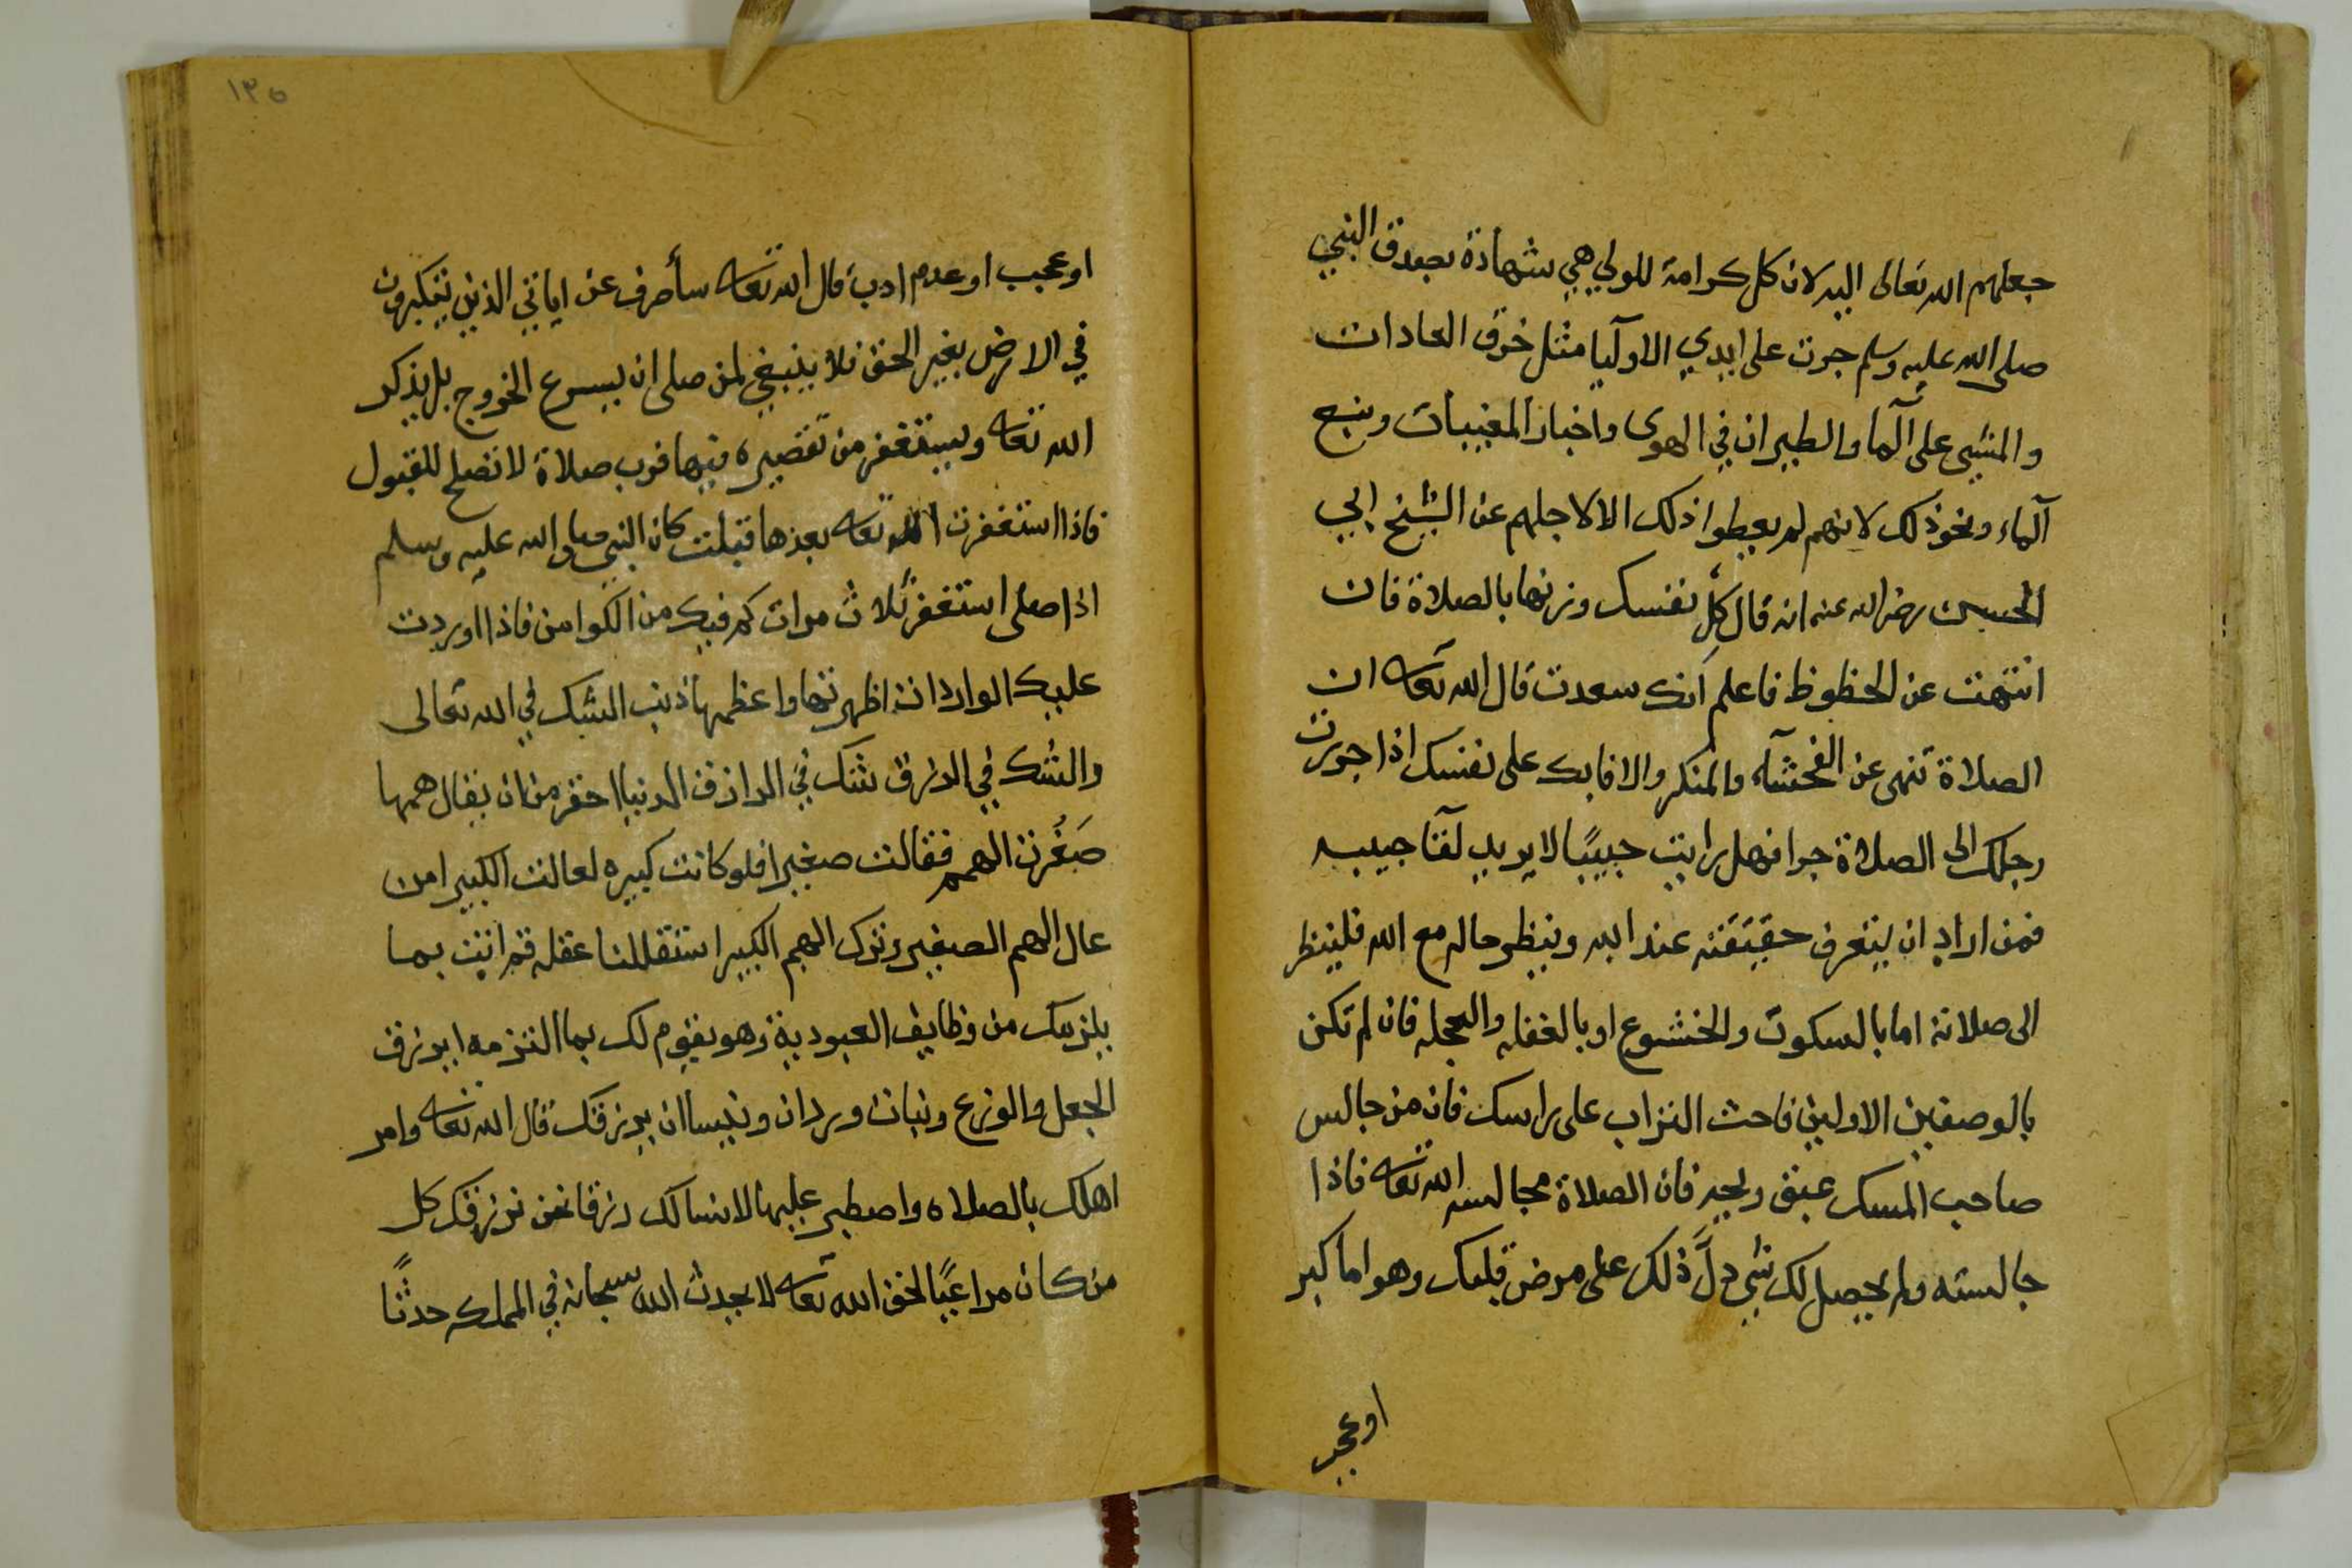 جعلهم الله تعالى اليه لان كل كرامة للولي هي شهادة بصدق النبي
صلى الله عليه وسلم جرت على ايدي الاوليا مثل خرق العادات
والمشي على الما والطيران في الهوى واخبار المغيبات ونبع
الماء ونحو ذلك لانهم لم يعطوا ذلك الا لاجلهم عن الشيخ ابي
الحسن رضي الله عنه انه قال كل نفسك وزنها بالصلاة فان
انتهت عن الحظوظ فاعلم انك سعدت قال الله تعالى ان
الصلاة تنهى عن الفحشآء والمنكر والا فابك على نفسك اذا جررت
رجلك الى الصلاة جرا فهل رايت حبيبًا لا يريد لقا حبيبه
فمن اراد ان يتعرف حقيقته عند الله وينظر حاله مع الله فلينظر
الى صلاته اما بالسكوت والخشوع او بالغفله والعجله فان لم تكن
بالوصفين الاولين فاحث التراب على راسك فان من جالس
صاحب المسك عبق ريحه فان الصلاة مجالسه الله تعالى فاذا
جالسته ولم يحصل لك شي دلَّ ذلك على مرض قلبك وهو اما كبر
او عجب
١٣٥
او عجب او عدم ادب قال الله تعالى سأصرف عن اياتي الذين يتكبرون
في الارض بغير الحق فلا ينبغي لمن صلى ان يسرع الخروج بل يذكر
الله تعالى ويستغفر من تقصيره فيها فرب صلاة لا تصلح للقبول
فاذا استغفرت الله تعالى بعدها قبلت كان النبي صلى الله عليه وسلم
اذا صلى استغفر ثلاث مرات كم فيك من الكوامن فاذا اوردت
عليك الواردات اظهرتها واعظمها ذنب الشك في الله تعالى
والشك في الرزق شك في الرازق الدنيا احقر من ان يقال همها
صَغُرت الهمم فقالت صغيرا فلو كانت كبيره لعالت الكبير امن
عال الهم الصغير وترك الهم الكبير استقللنا عقله قم انت بما
يلزمك من وظايف العبودية وهو يقوم لك بما التزمه ايرزق
الجعل والوزغ وبنات وردان وينسا ان يرزقك قال الله تعالى وامر
اهلك بالصلاه واصطبر عليها لا نسالك رزقا نحن نرزقك كل
من كان مراعيًا لحق الله تعالى لا يحدث الله سبحانه في المملكه حدثًا